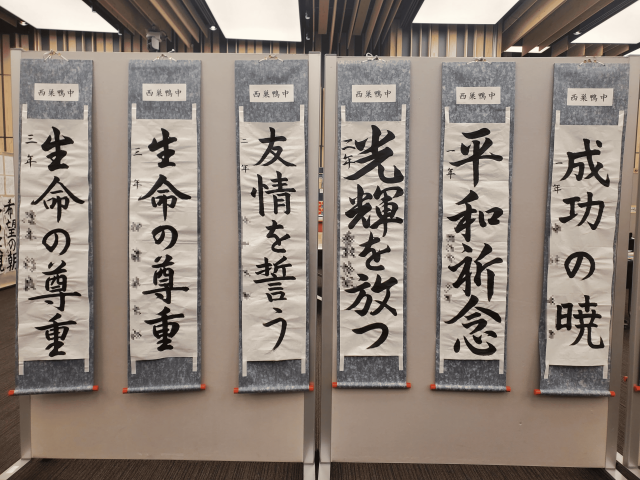 西巣鴨中
成功の暁
一年
西巣鴨中
平和祈念
一年
西巣鴨中
光輝を放つ
二年
西巣鴨中
友情を誓う
二年
西巣鴨中
生命の尊重
三年
西巣鴨中
生命の尊重
三年
希望の朝